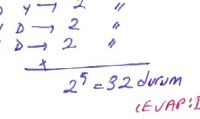 Y → 2 "
D → 2 "
D → 2 "
+
2⁵ = 32 durum
(CEVAP: